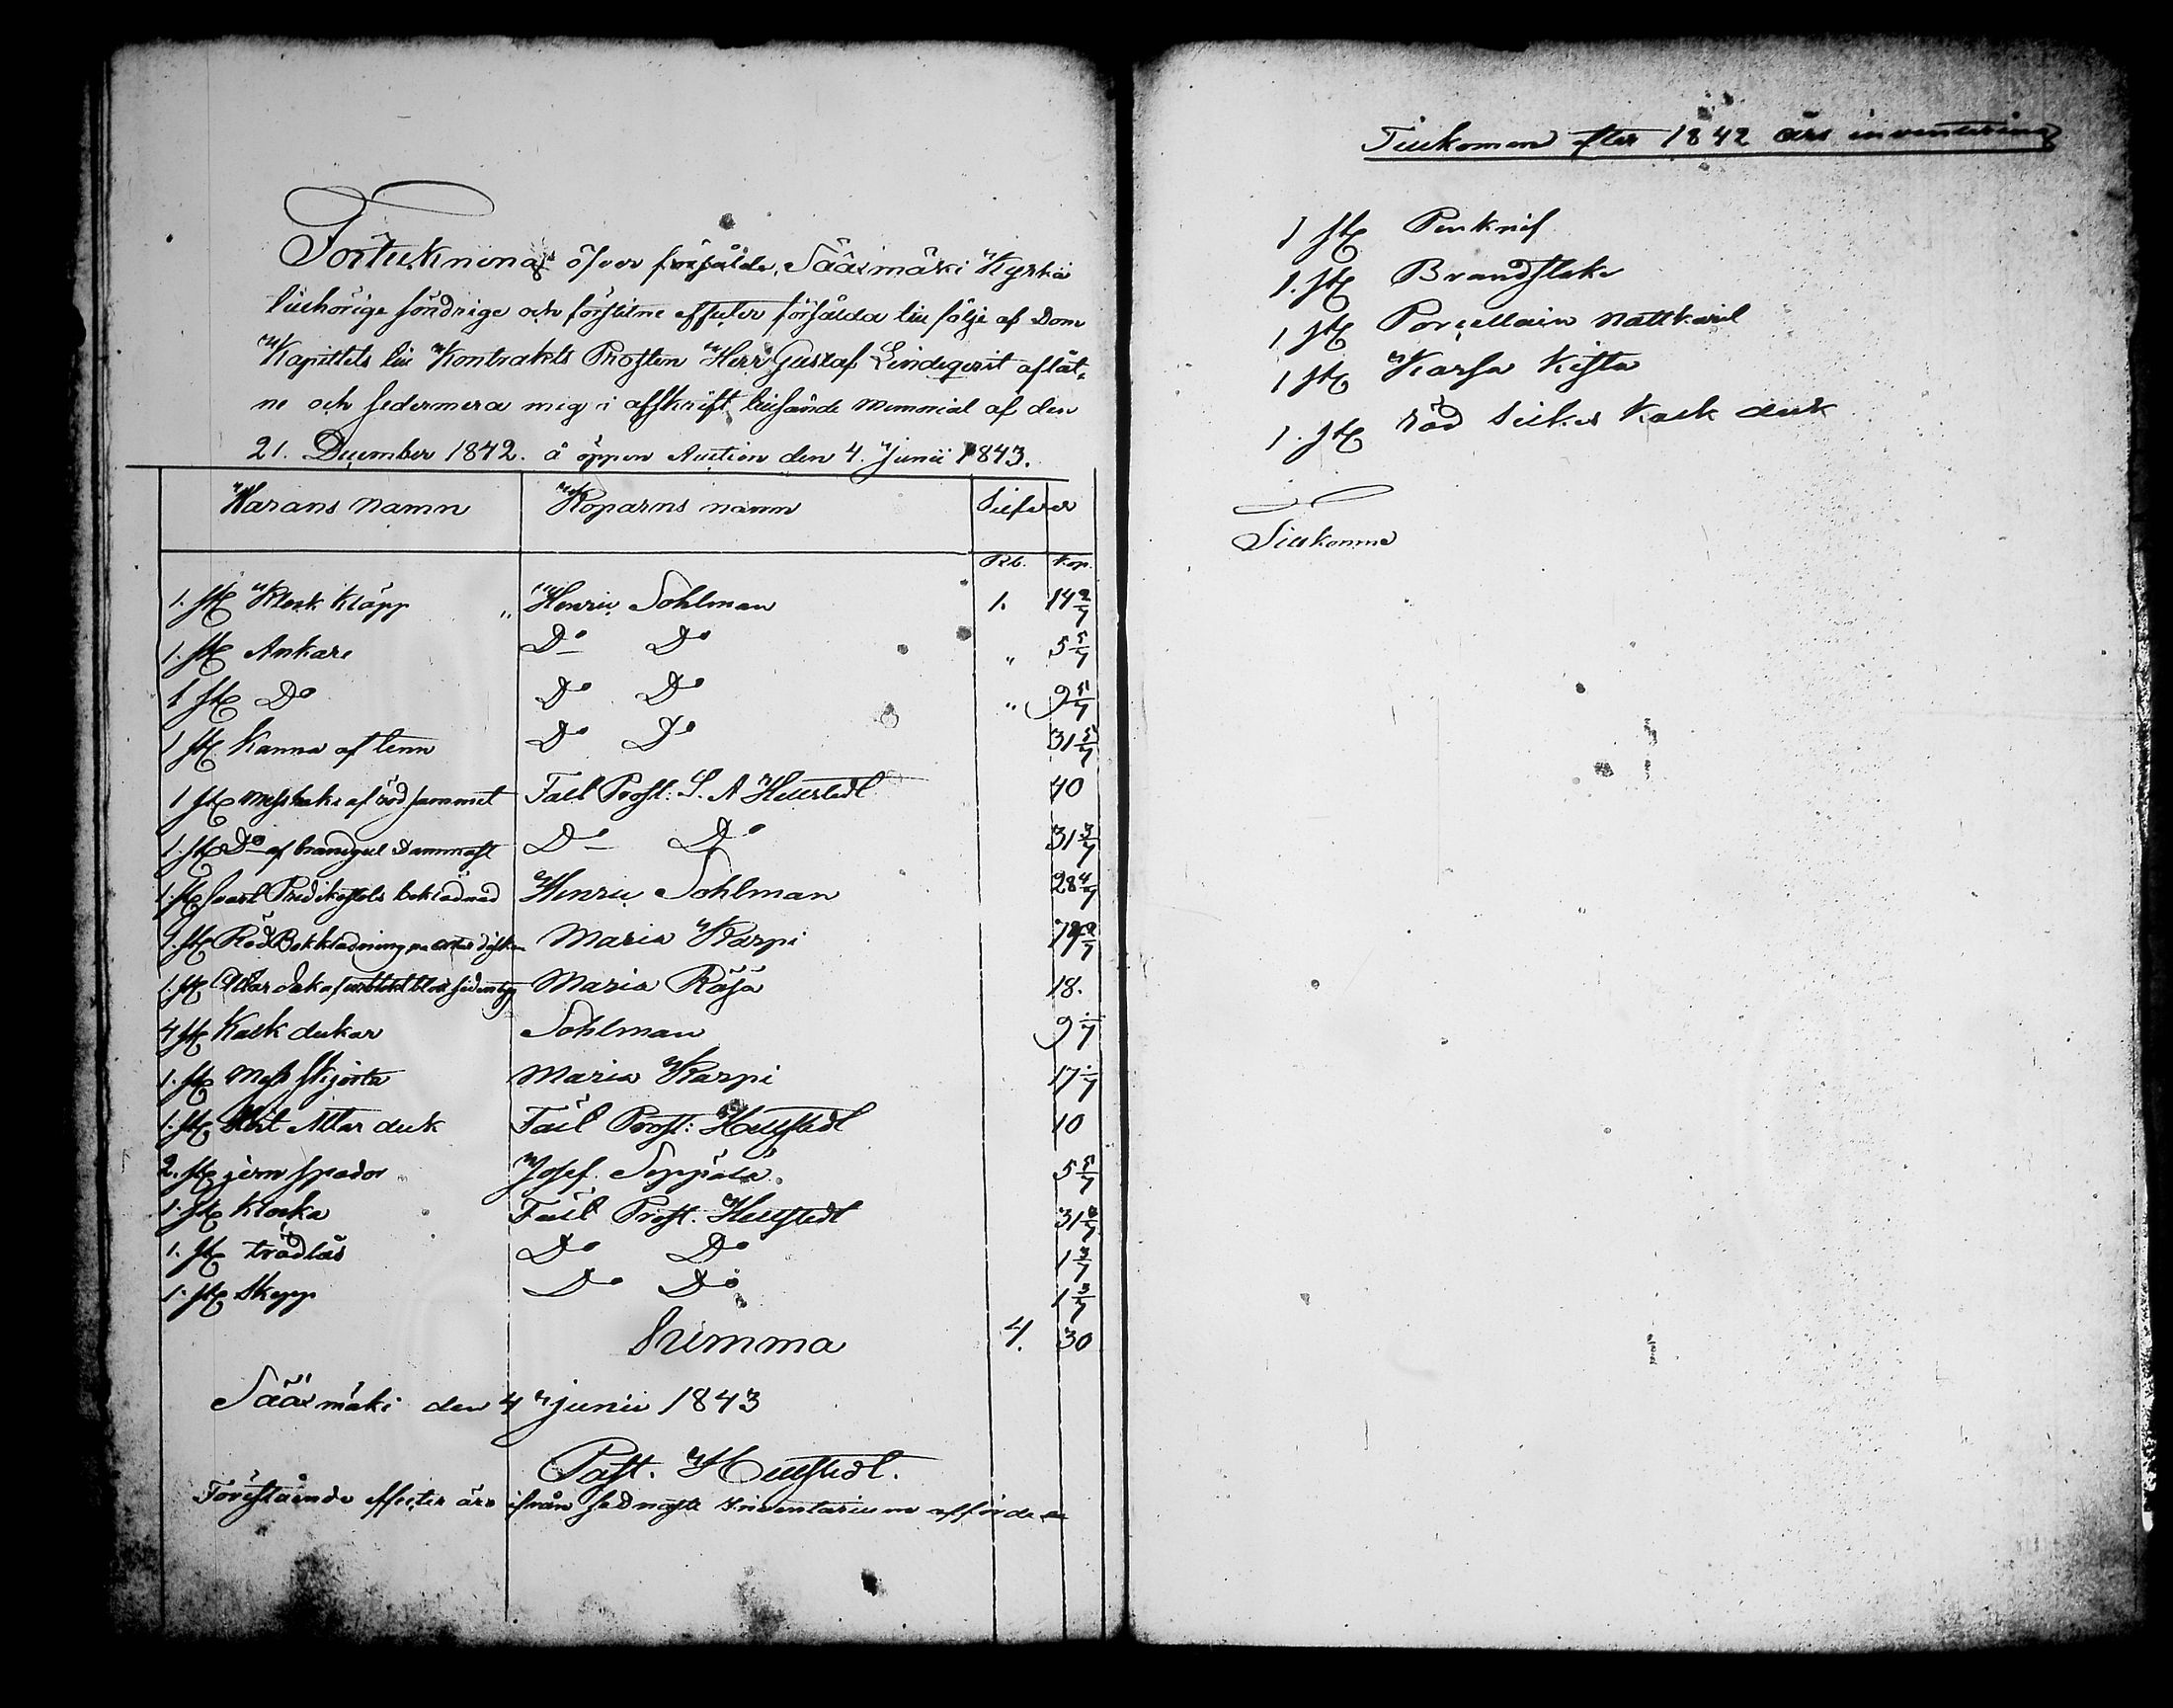 Förteckning öfver försålde, Sääxmäki Kyrka
tillhörige söndrige och förslitne effecter försålda till följe af Dom
Kapittels till Kontrakts Prosten Herr Gustaf Lindeqvist aflåt-
ne och sedermera mig i afskrift tillsände Memorial af den
21. December 1842. å öppen Auction den 4. Junii 1843.
Warans Namn Köparns namn Silfver
Rb. Kop.
1. st Klock Kläpp " Henric Sohlman 1. 14 2/7
1. st Ankare Do Do " 5 5/7
1 st Do Do Do " 9 5/7
1 st Kanna af tenn Do Do 31 5/7
1 st Messhake af röd sammet Täll Prost: S. A Hellstedt 40
1. st Do af brandgul Dammast Do Do 31 3/7
1. st svart Predikstols beklädnad Henric Sohlman 28 4/7
1. st Röd Bekklädning på altar disken Maria Karpi
1. st Altar duk af blått sidentyg Maria Räsä 18.
4 st Kalk dukar Sohlman 9 1/7
1. st Mess skjorta Maria Karpi 17 1/7
1. st Hvit Altar duk Täll Prost: Hellstedt 10
2. st jern spador Josef Seppälä 5 5/7
1. st Klocka Täll Prost. Hellstedt 31
1. st trädlås Do Do 1 3/7
1. st Skepp Do Do 1 3/7
Summa 4. 30
Sääxmäki den 4 Junii 1843
Past. Hellstedt.
Förestående effecter äro ifrån sednaste Inventarium afförde
Tillkomen efter 1842 års inventering
1 st Penknif
1. st Brandstake
1 st Porcellain Nattkäril
1 st Karsa Kista
1. st röd silkes Kalk duk
Tillkomne